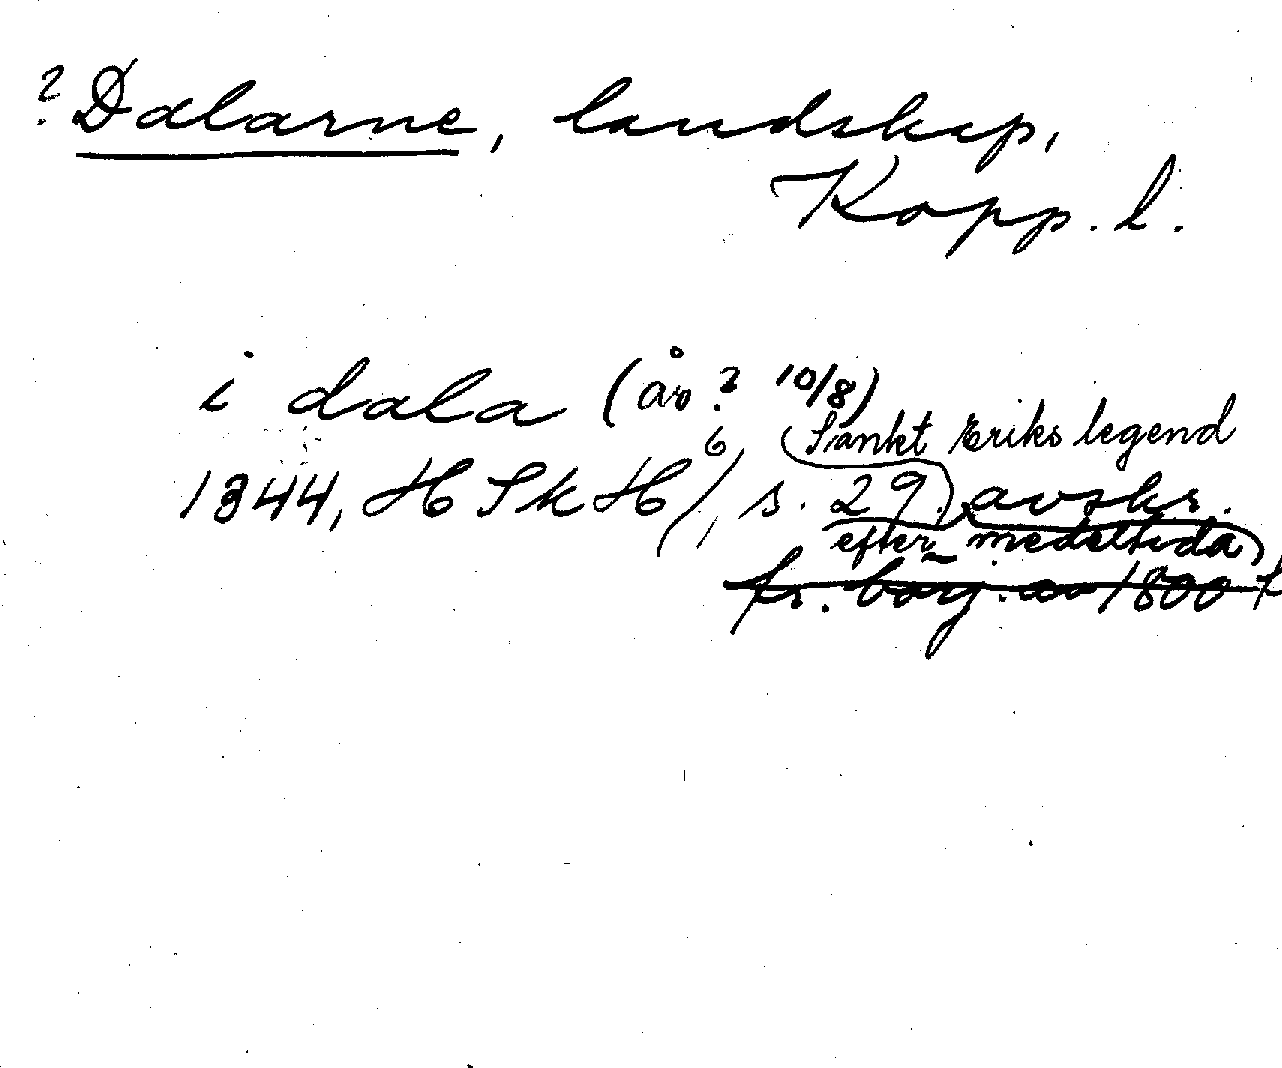 ? Dalarne, landskap,
Kopp. l.
i dala (år? 10/8)
Sankt Eriks legend
1344, H Sk H 6, s. 29) avskr.
efter medeltida
fr. börj. av 1800